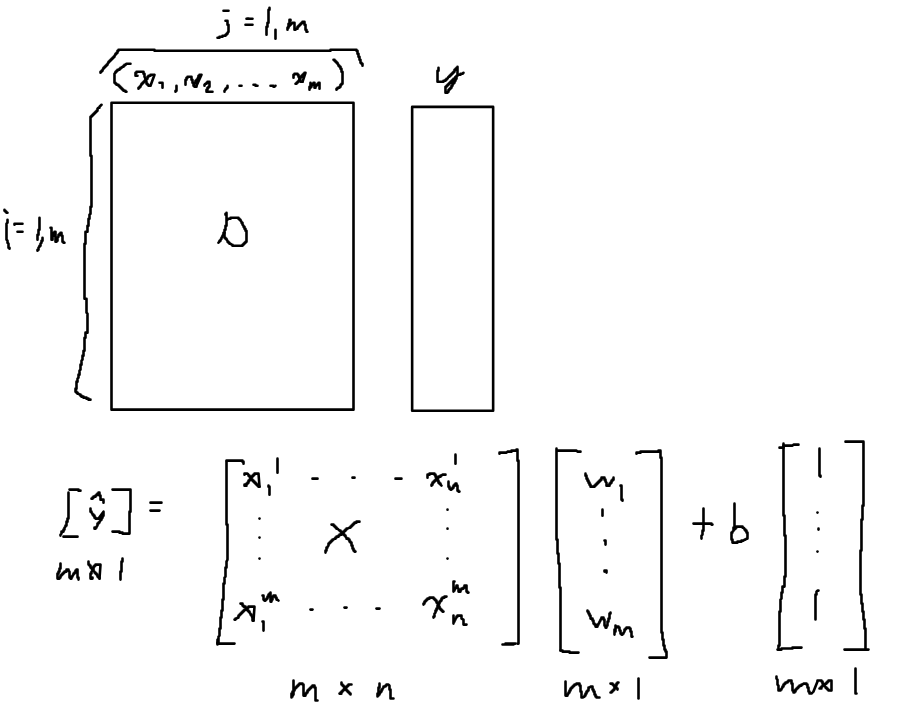 j = 1, m
(x₁, x₂, ... xₘ) y
i = 1, m D
[ŷ] = [x₁¹ - - - xₙ¹ ⋮ X ⋮ x₁ᵐ . . . xₙᵐ] [w₁ ⋮ wₘ] + b [1 ⋮ 1]
m x 1 m x n m x 1 m x 1